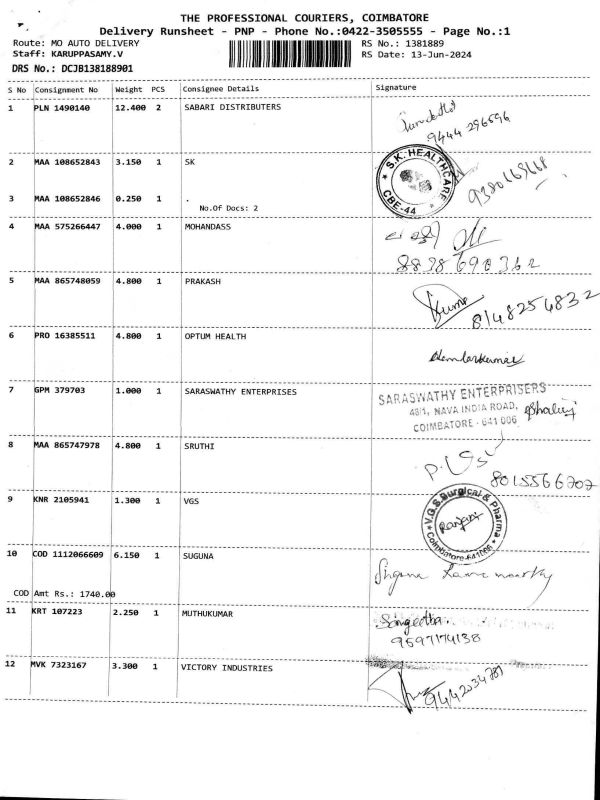 THE PROFESSIONAL COURIERS, COIMBATORE
Delivery Runsheet - PNP - Phone No.:0422-3505555 - Page No.:1
Route: MO AUTO DELIVERY RS No.: 1381889
Staff: KARUPPASAMY.V RS Date: 13-Jun-2024
DRS No.: DCJB138188901
S No Consignment No Weight PCS Consignee Details Signature
1 PLN 1490140 12.400 2 SABARI DISTRIBUTERS
9444 296596
2 MAA 108652843 3.150 1 SK
S.K. HEALTHCARE
CBE-44
3 MAA 108652846 0.250 1 .
No.Of Docs: 2
4 MAA 575266447 4.000 1 MOHANDASS
8838690362
5 MAA 865748059 4.800 1 PRAKASH
Kumar
8148254832
6 PRO 16385511 4.800 1 OPTUM HEALTH
7 GPM 379703 1.000 1 SARASWATHY ENTERPRISES
SARASWATHY ENTERPRISERS
48/1, NAVA INDIA ROAD,
COIMBATORE - 641 006
8 MAA 865747978 4.800 1 SRUTHI
8015566202
9 KNR 2105941 1.300 1 VGS
V.G.S. Surgical & Pharma
Ranjani
Coimbatore-641006
10 COD 1112066609 6.150 1 SUGUNA
COD Amt Rs.: 1740.00
11 KRT 107223 2.250 1 MUTHUKUMAR
Sangeetha
9597174138
12 MVK 7323167 3.300 1 VICTORY INDUSTRIES